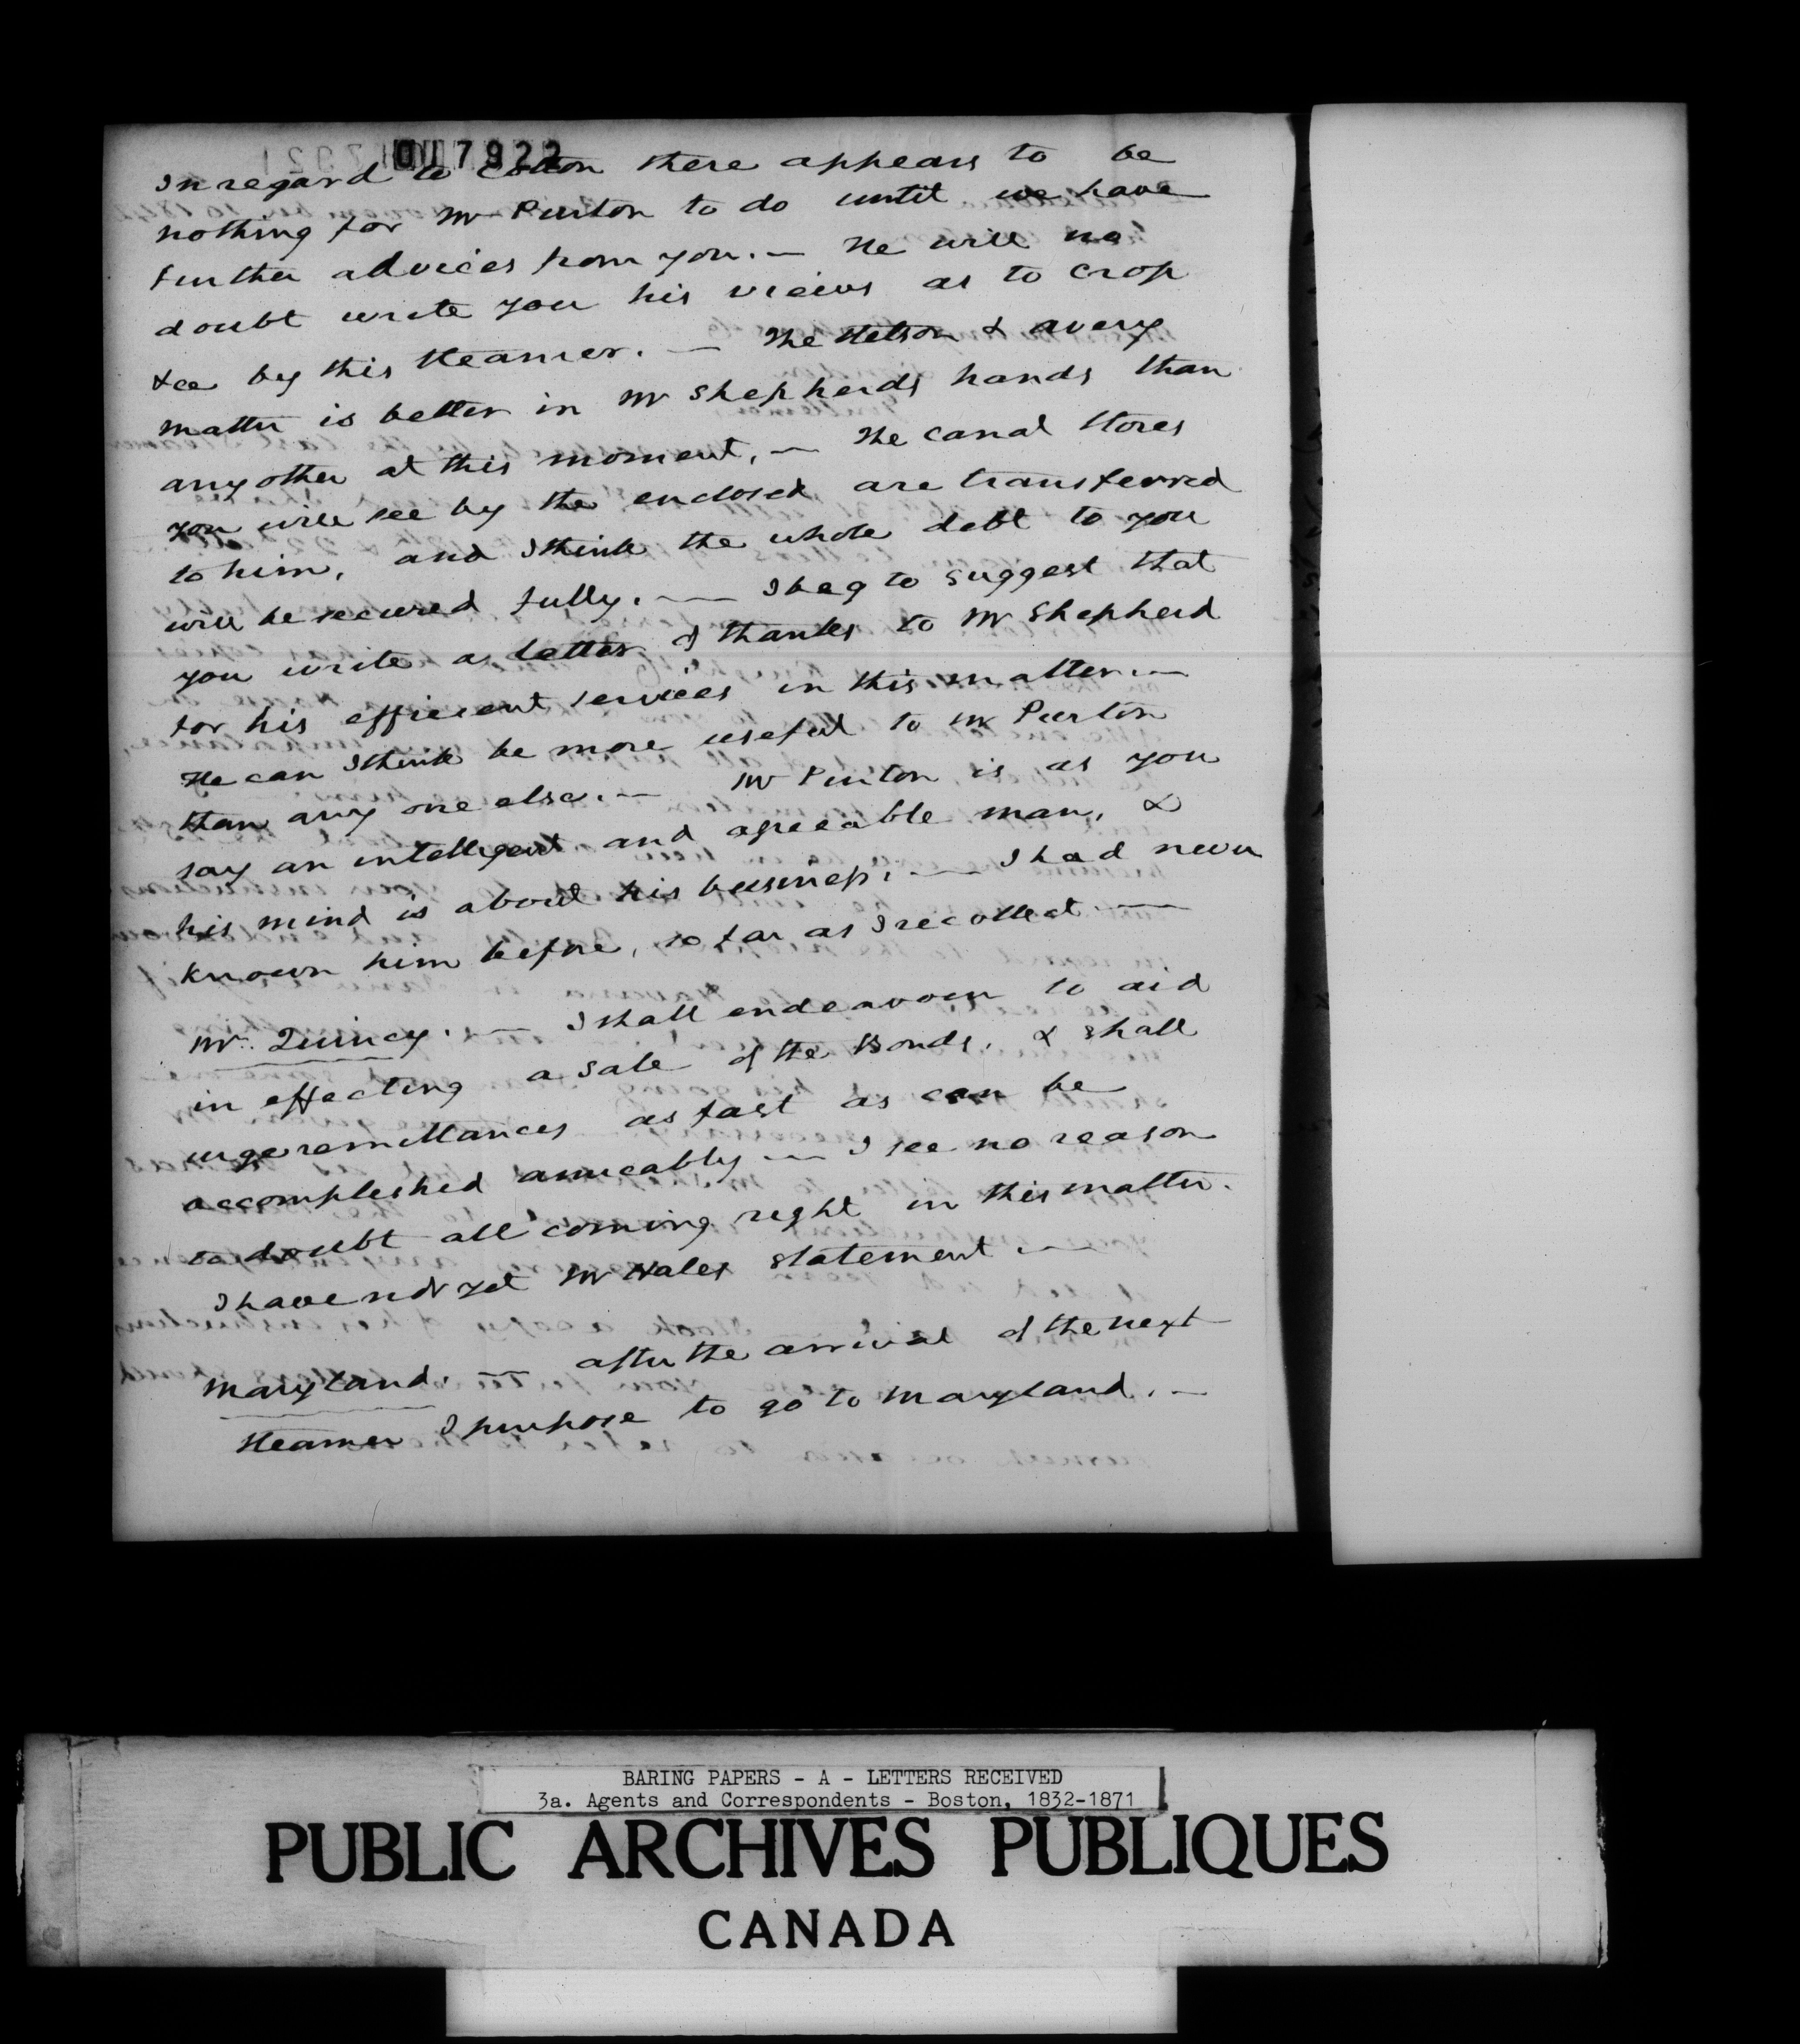 017922
In regard to Cotton there appears to be
nothing for Mr Purton to do until we have
further advices from you. — He will no
doubt write you his views as to crop
&ca by this Steamer. — The Stetson & Avery
matter is better in Mr Shepherds hands than
any other at this moment, — The Canal Stores
you will see by the enclosed are transferred
to him, and I think the whole debt to you
will be secured fully. — I beg to suggest that
you write a letter of thanks to Mr Shepherd
for his efficient services in this matter. —
He can I think be more useful to Mr Purton
than any one else. — Mr Purton is as you
say an intelligent and agreeable man, &
his mind is about his business. — I had never
known him before, so far as I recollect. —
Mr. Quincy. — I shall endeavour to aid
in effecting a sale of the Bonds, & shall
urge remittances as fast as can be
accomplished amicably — I see no reason
to doubt all coming right in this matter.
I have not yet Mr Hales statement. —
Maryland. — after the arrival of the next
Steamer I purpose to go to Maryland. —
BARING PAPERS - A - LETTERS RECEIVED
3a. Agents and Correspondents - Boston, 1832-1871
PUBLIC ARCHIVES PUBLIQUES
CANADA